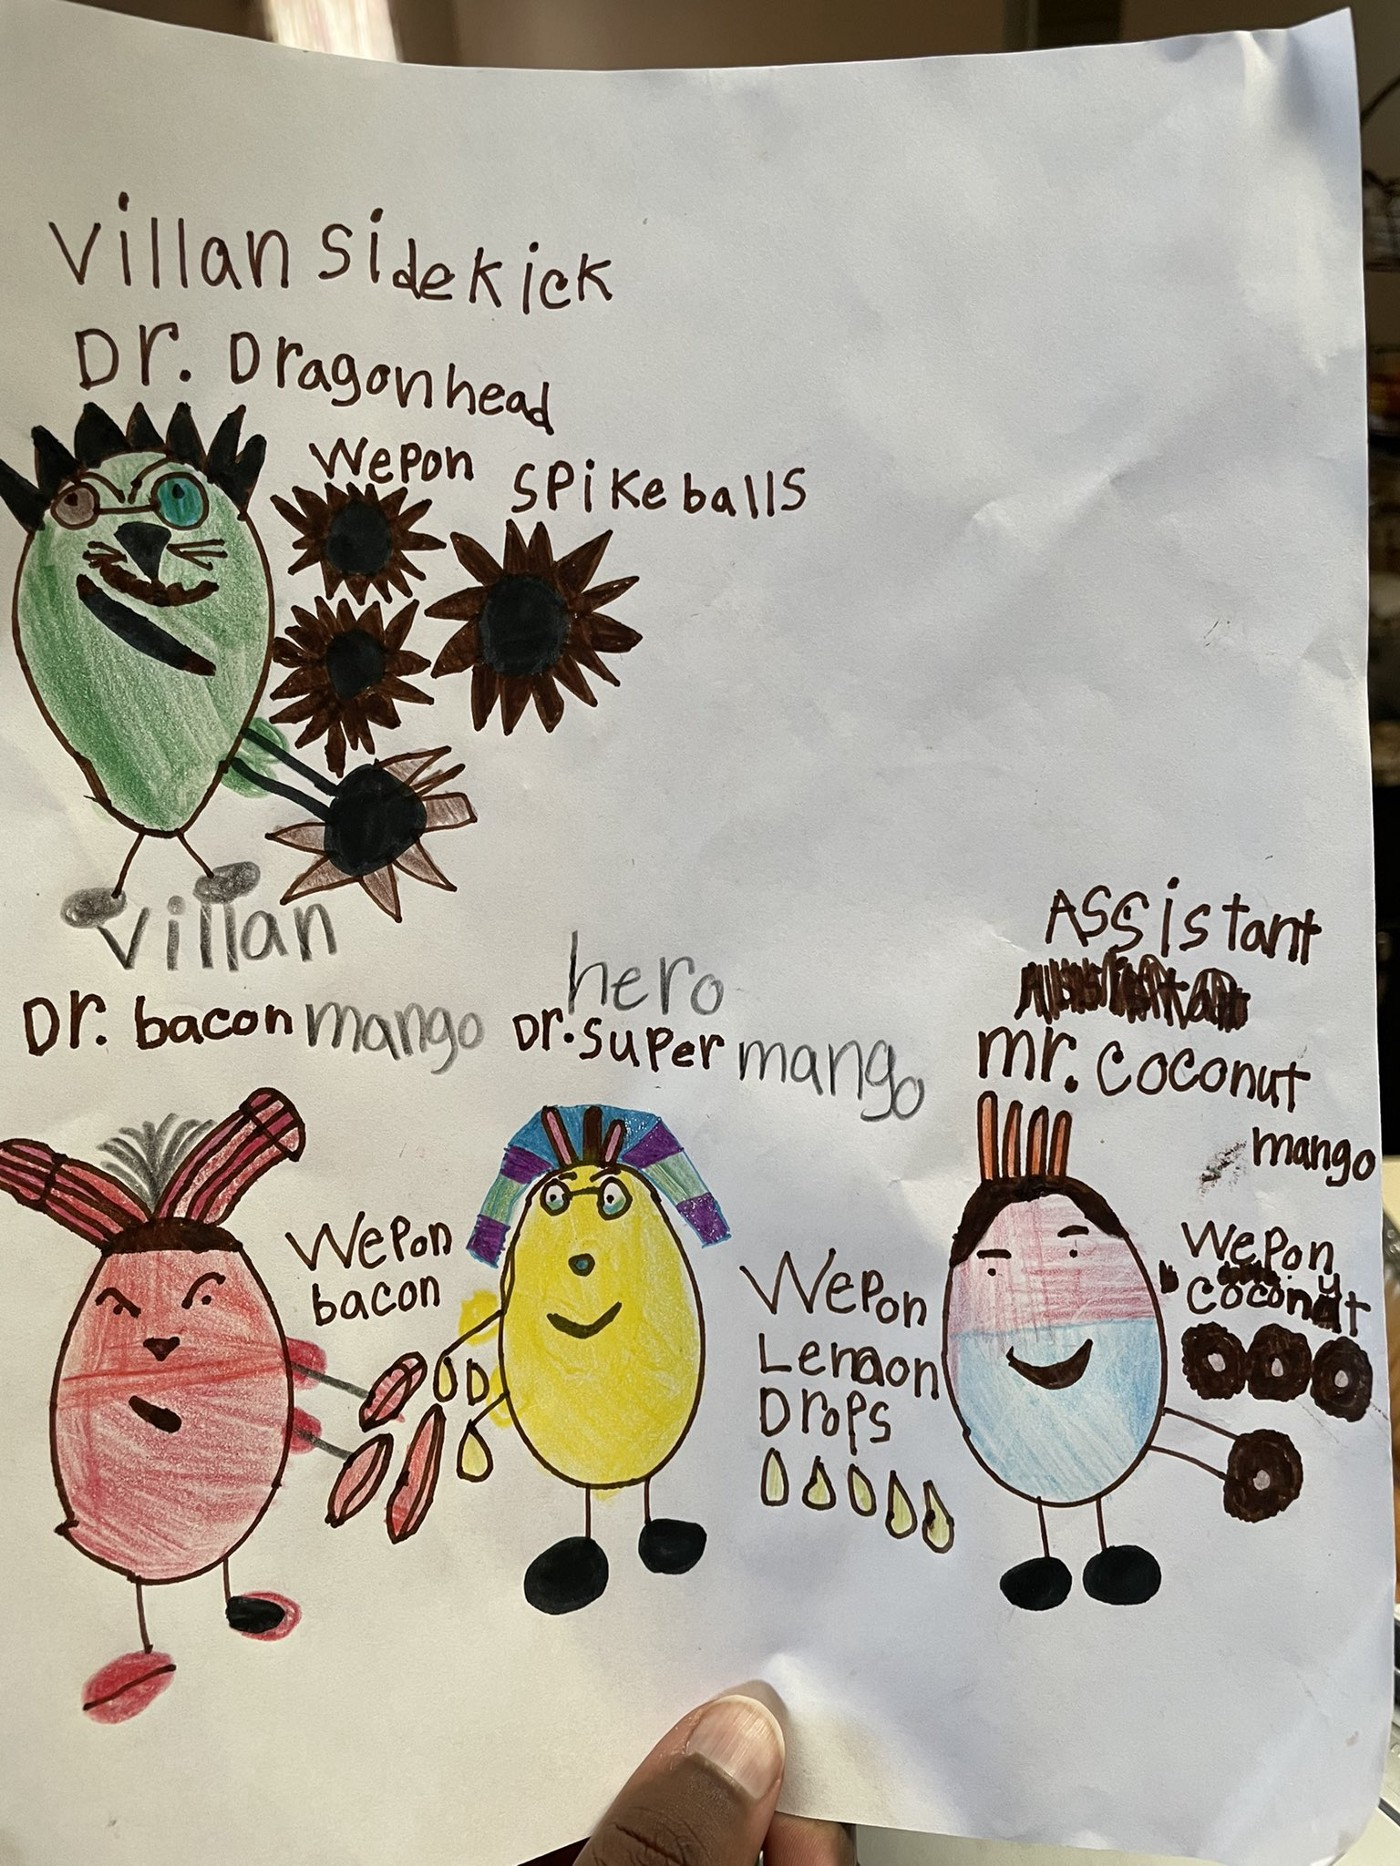 villan sidekick
Dr. Dragonhead
Wepon spikeballs
villan
Dr. bacon mango
hero
Dr. super mango
Assistant
mr. coconut
mango
Wepon
bacon
Wepon
Lemon
Drops
Wepon
coconut